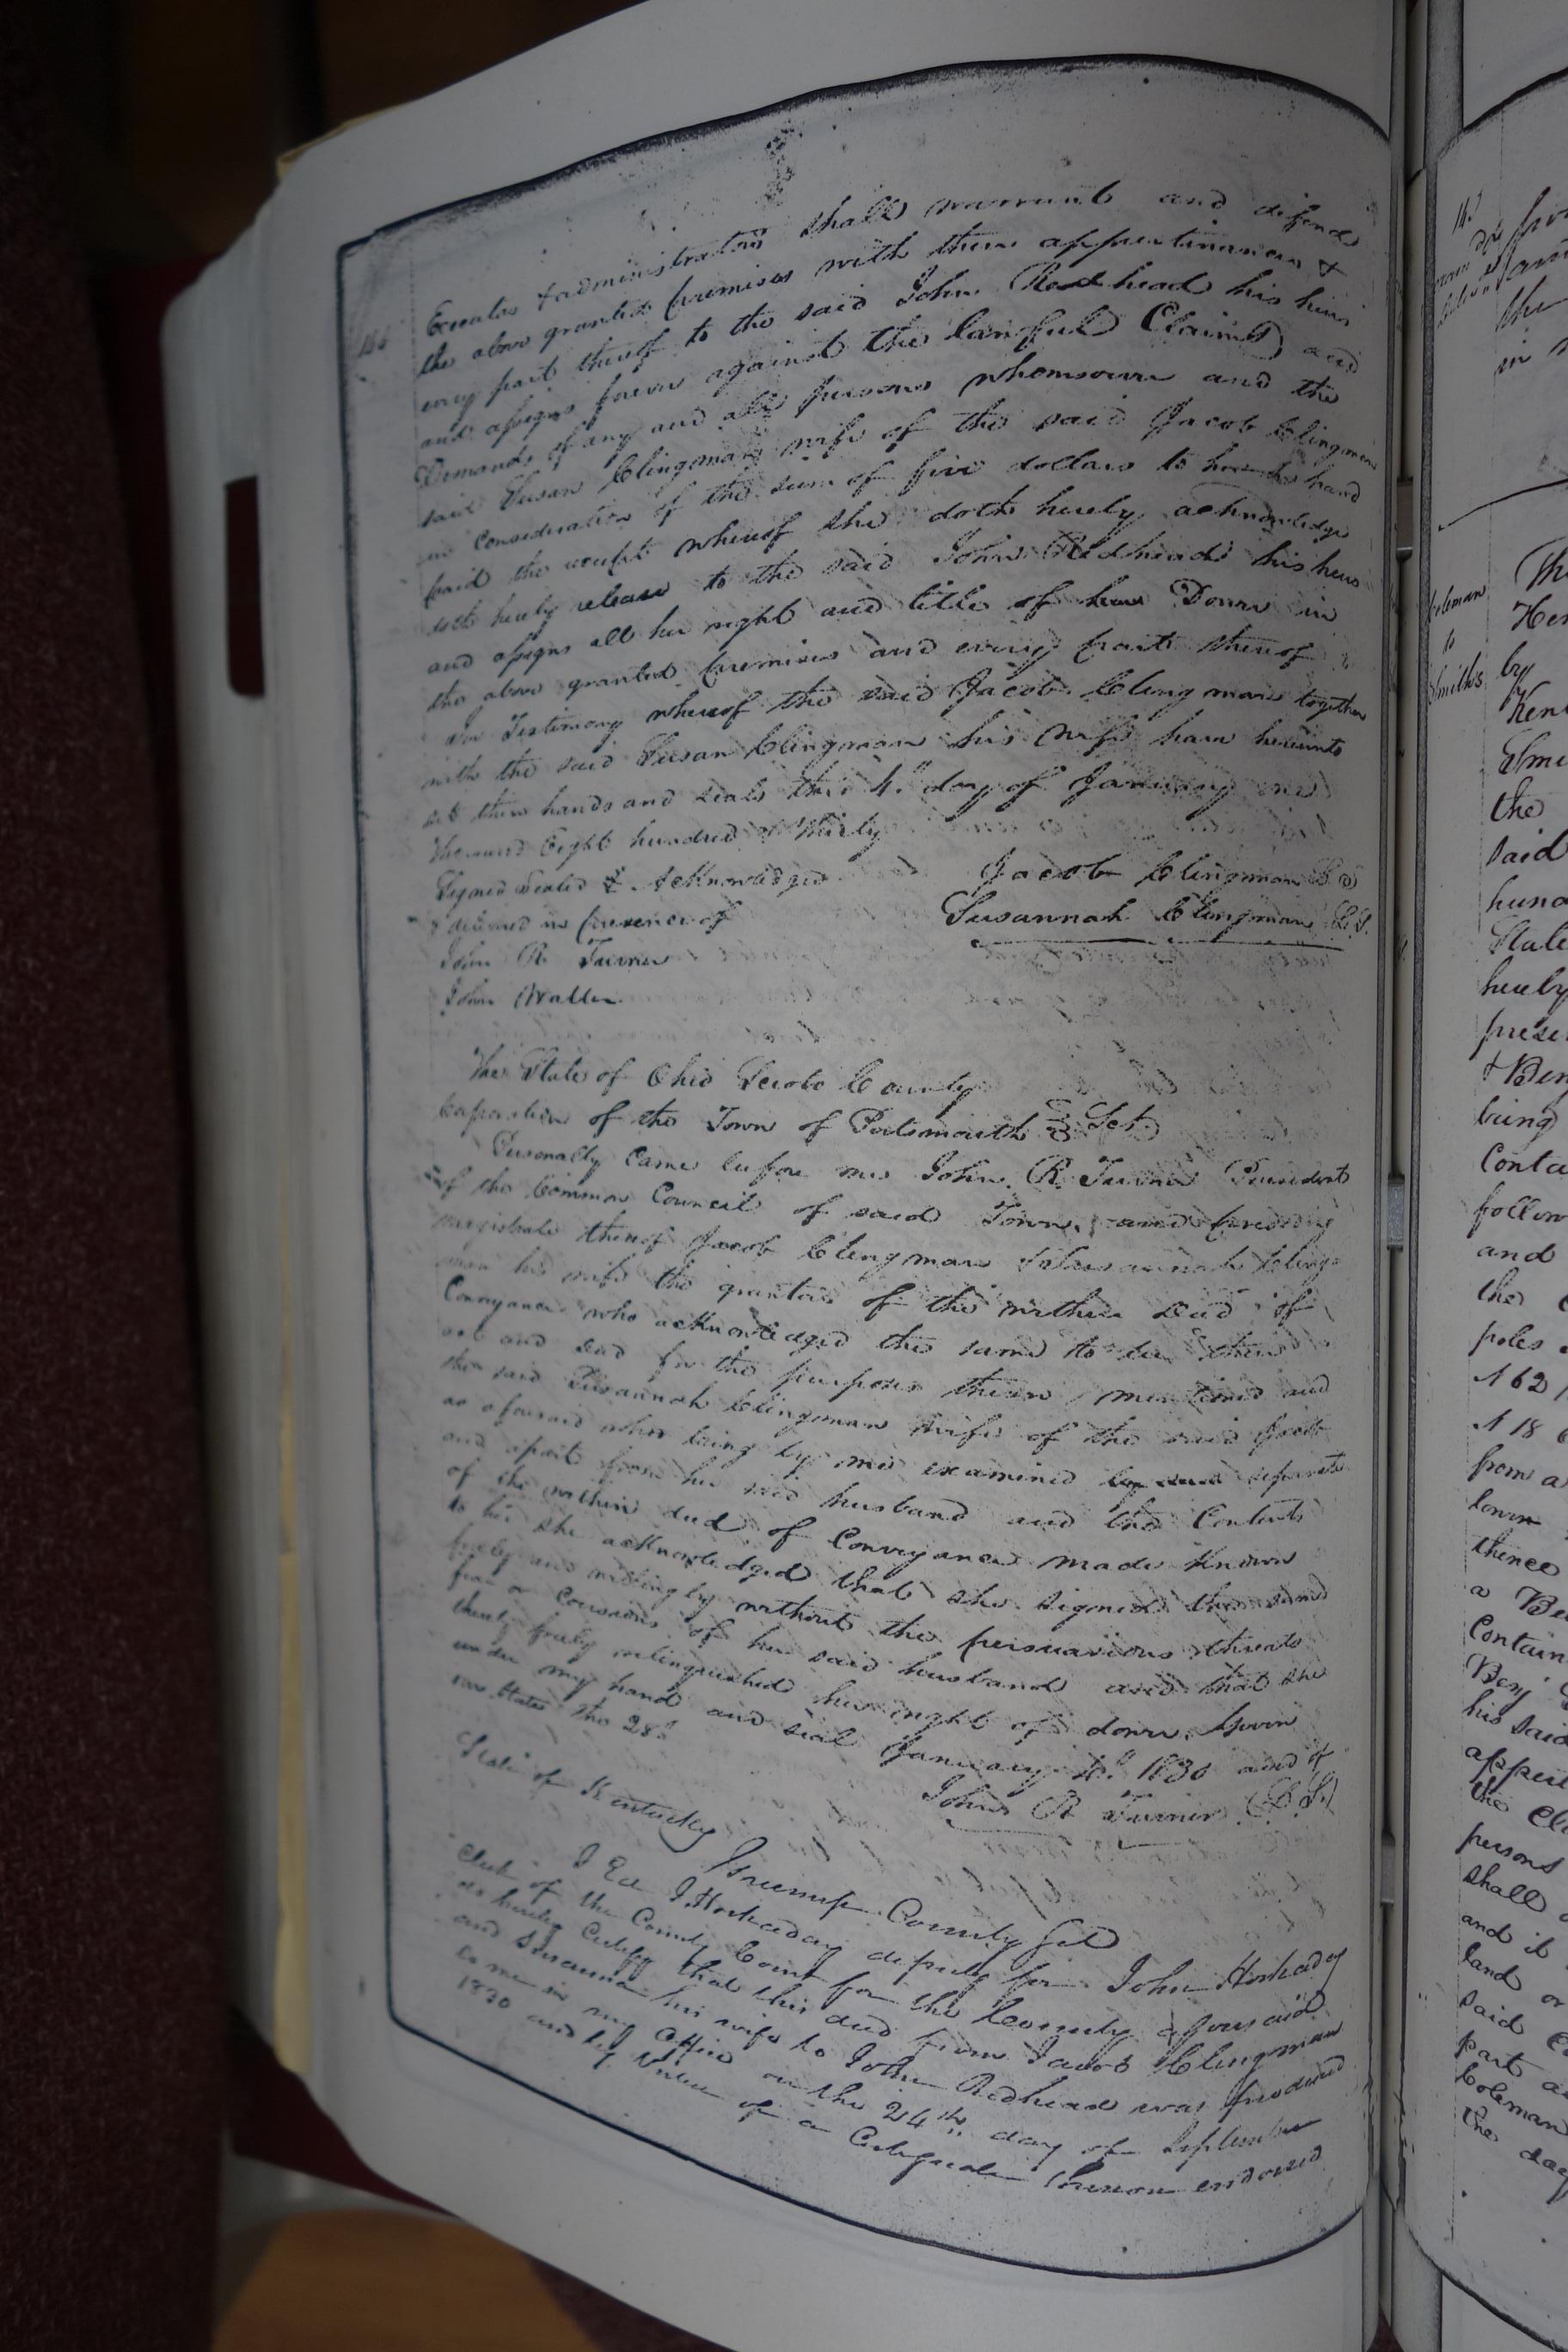 Executors & administrators shall warrant and defend
the above granted premises with there appertinances &
every part thereof to the said John Redhead his heirs
and assigns forever against the lawful Claims and
Demands of any and all persons whomsoever and the
said Susan Clingman wife of the said Jacob Clingman
in Consideration of the sum of five dollars to her in hand
paid the receipt whereof she doth hereby acknowledge
doth hereby release to the said John Redhead his heirs
and assigns all her right and title of her Dower in
the above granted premises and every part thereof
In Testimony whereof the said Jacob Clingman together
with the said Susan Clingman his wife have hereunto
set there hands and seals this 4th day of January one
thousand Eight hundred & thirty
Signed Sealed & Acknowledged Jacob Clingman L.S.
& delivered in presence of Susannah Clingman L.S.
John R. Turner
John Waller
The State of Ohio Scioto County
Corporation of the Town of Portsmouth Sct
Personally Came before me John R. Turner President
of the Common Council of said Town and presiding
magistrate thereof Jacob Clingman & Susannah Cling-
man his wife the grantors of the within deed of
Conveyance who acknowledged the same to be their
act and deed for the purposes therein mentioned and
the said Susannah Clingman wife of the said Jacob
as aforesaid who being by me examined separate
and apart from her said husband and the Contents
of the within deed of Conveyance made Known
to her she acknowledged that she signed the same
freely and willingly without the persuasions threats
fear or Coersions of her said husband and that she
thereby freely relinquished her right of dower Given
under my hand and seal January 4th 1830 and of
our States the 28th
John R Turner (L.S.)
State of Kentucky
Greenup County Sct
I Ed J Hockaday deputy for John Hockaday
Clerk of the County Court for the County aforesaid
do hereby Certify that this deed from Jacob Clingman
and Susanna his wife to John Redhead was produced
to me in my Office on the 24th day of September
1830 and by virtue of a Certificate thereon endorsed
Coleman
to
Smiths
The
by
the
said
hereby
being
follow
and
the
poles
N 62
N 18
from a
thence
Contain
his said
persons
shall
and it
land or
said
part
Coleman
the day